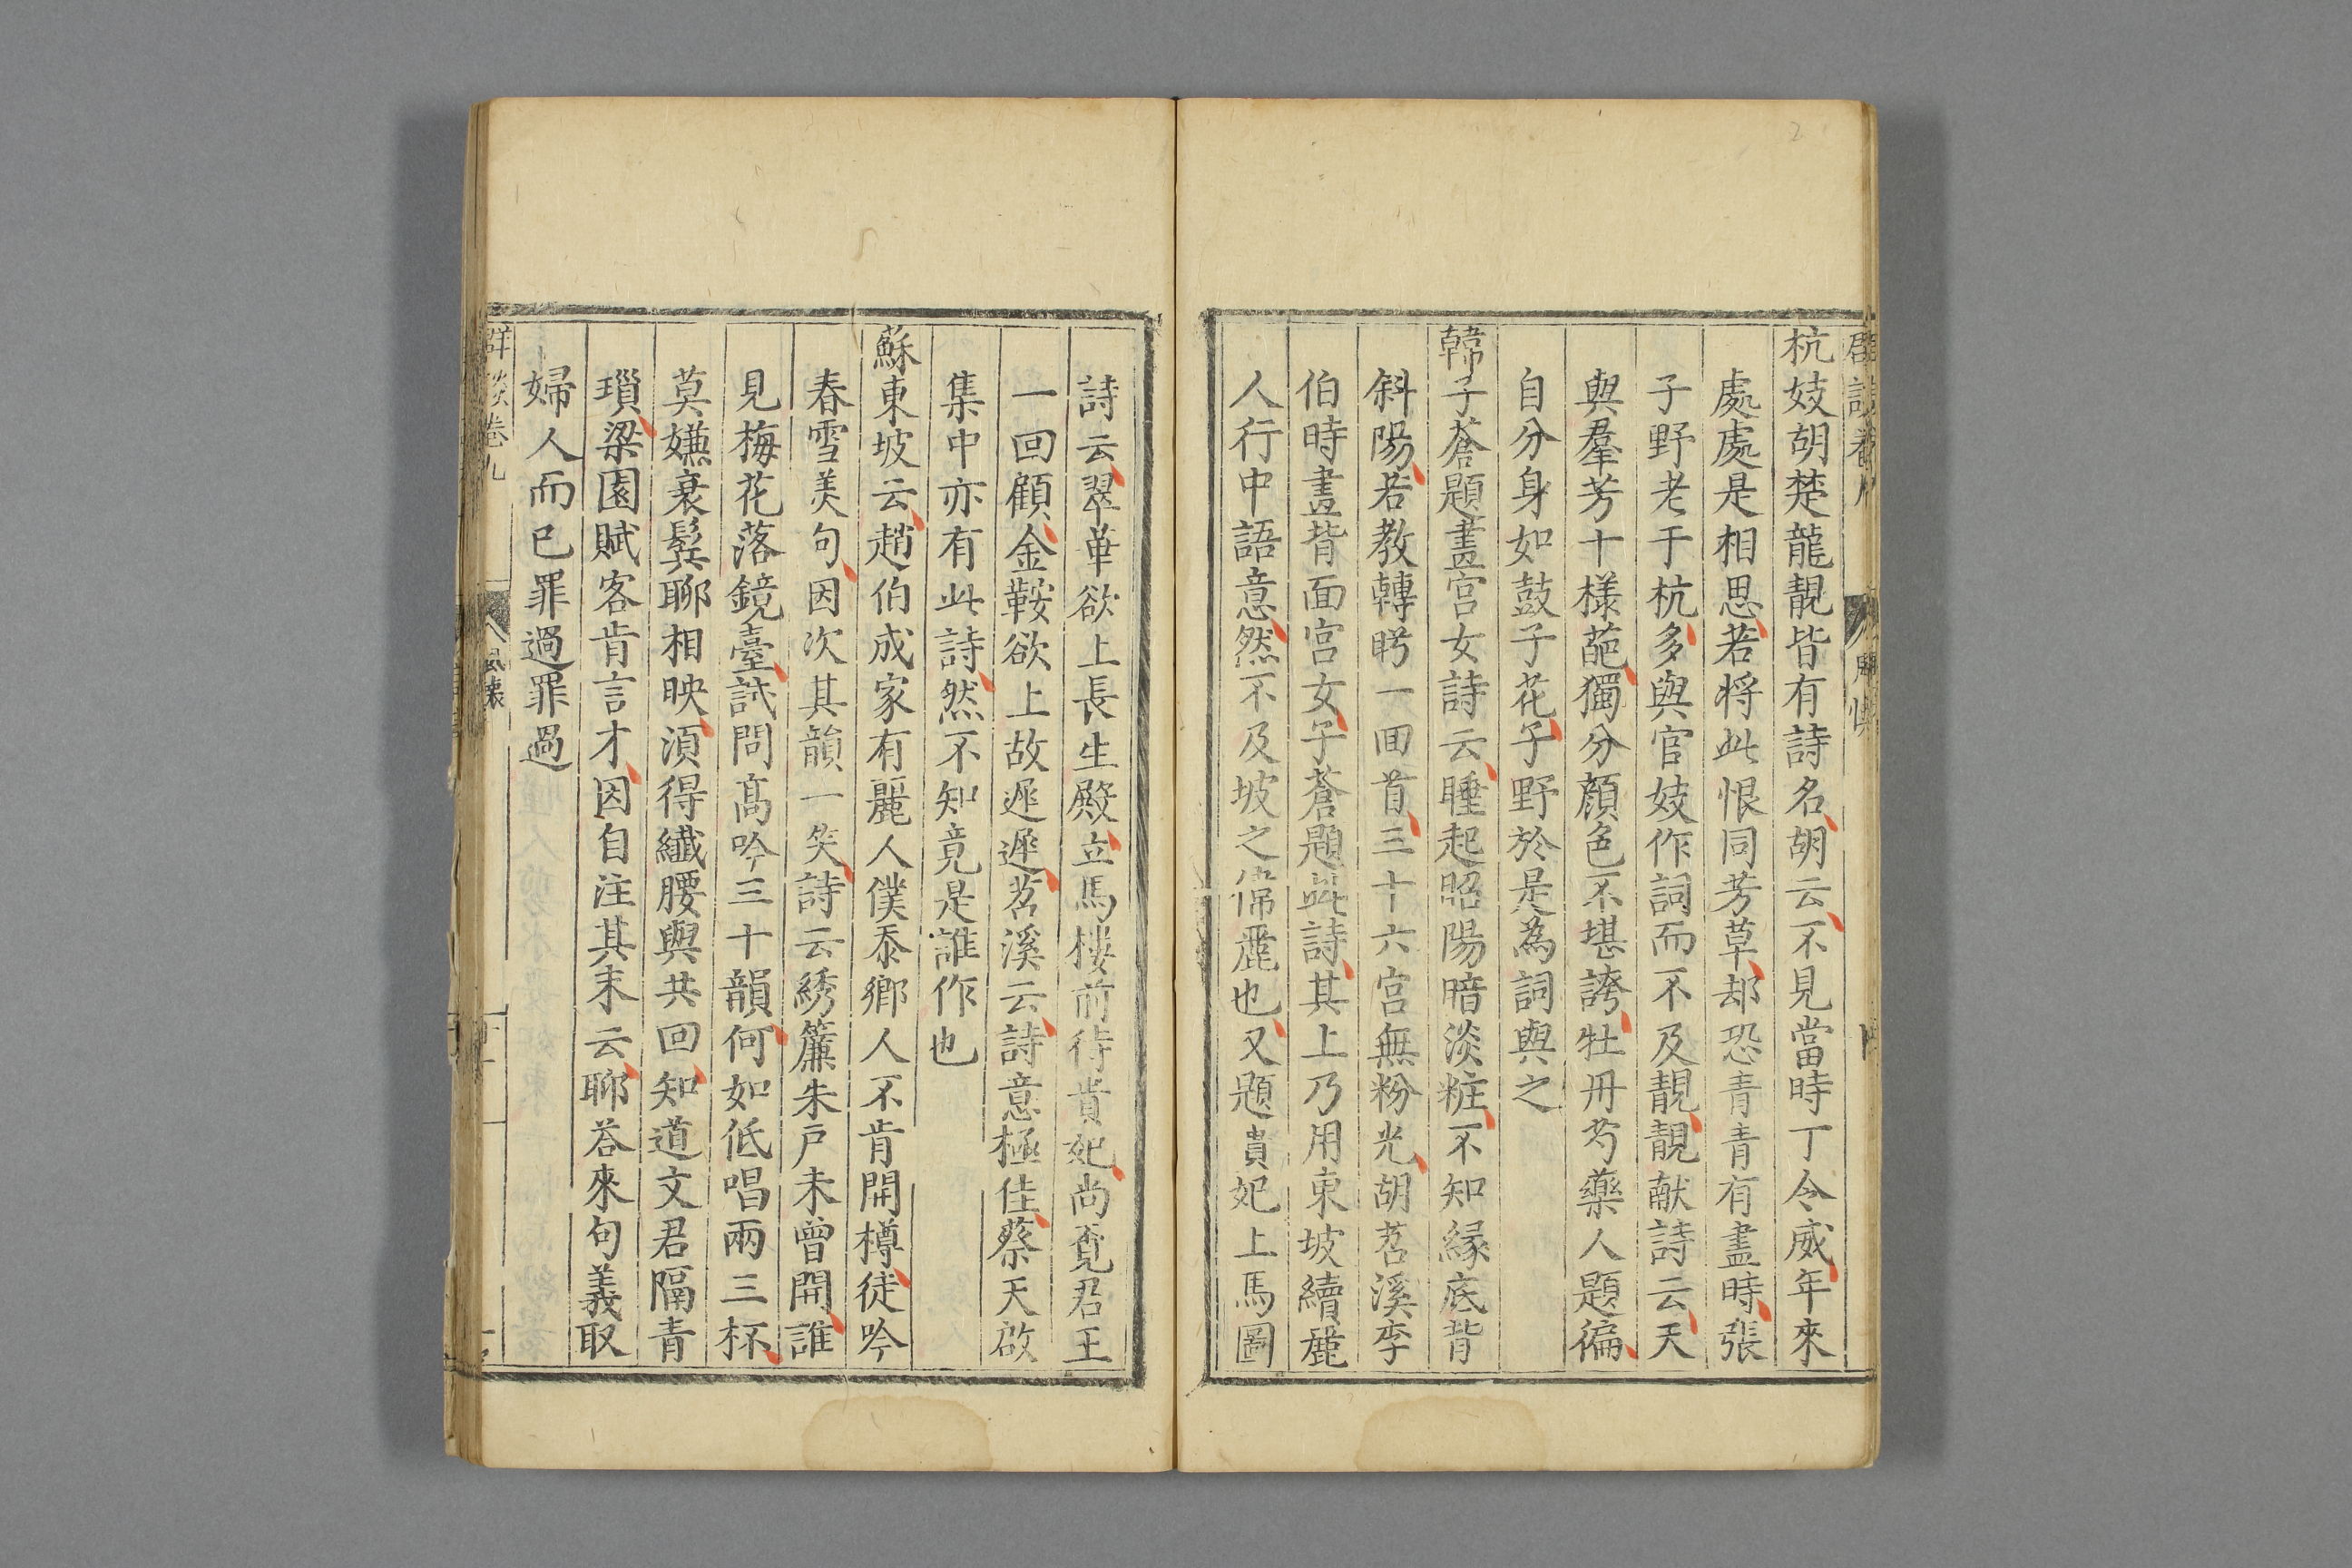 杭妓胡楚龍靚皆有詩名胡云不見當時丁令威年來
處處是相思若將此恨同芳草却恐青青有盡時張
子野老于杭多與官妓作詞而不及靚靚献詩云天
與羣芳十樣葩獨分顏色不堪誇牡丹芍藥人題徧
自分身如鼓子花子野於是為詞與之
韓子蒼題畫宮女詩云睡起昭陽暗淡粧不知緣底背
斜陽若教轉盻一回首三十六宮無粉光胡苕溪李
伯時畫背面宮女子蒼題此詩其上乃用東坡續麗
人行中語意然不及坡之偉麗也又題貴妃上馬圖
詩云翠華欲上長生殿立馬樓前待貴妃尚覓君王
一回顧金鞍欲上故遲遲苕溪云詩意極佳蔡天啟
集中亦有此詩然不知竟是誰作也
蘇東坡云趙伯成家有麗人僕忝鄉人不肯開樽徒吟
春雪美句因次其韻一笑詩云綉簾朱戶未曾開誰
見梅花落鏡臺試問高吟三十韻何如低唱兩三杯
莫嫌衰鬂聊相映須得纖腰與共回知道文君隔青
瑣梁園賦客肯言才因自注其末云聊荅來句義取
婦人而已罪過罪過
群談卷九